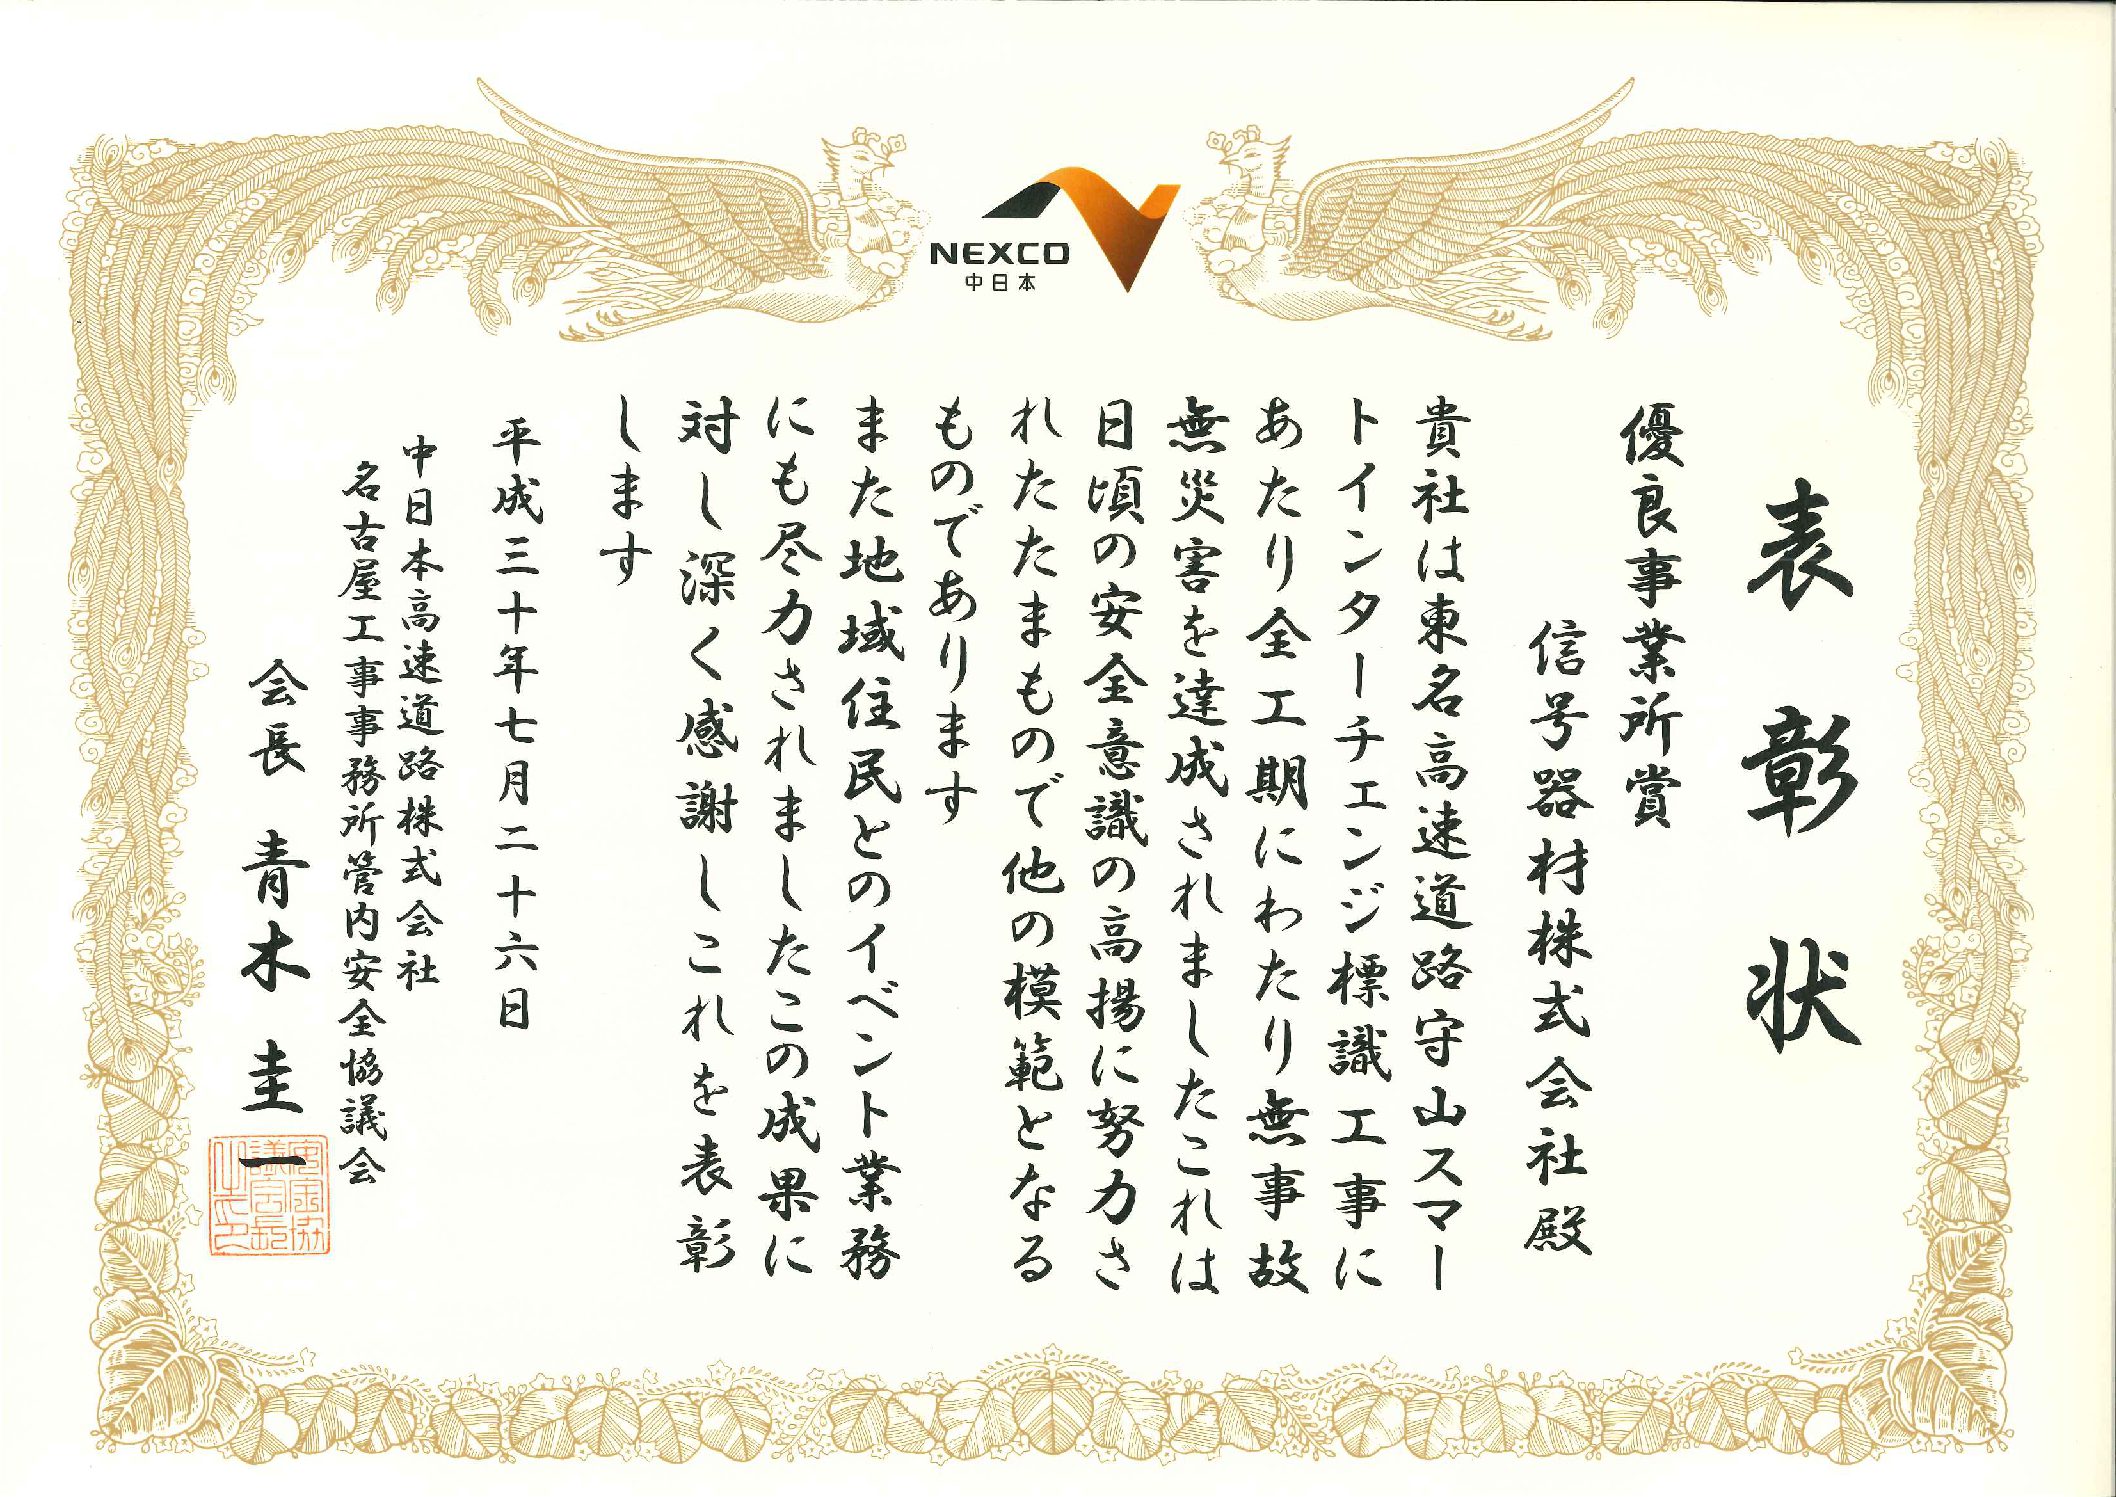 NEXCO
中日本
表彰状
優良事業所賞
信号器材株式会社殿
貴社は東名高速道路守山スマー
トインターチェンジ標識工事に
あたり全工期にわたり無事故
無災害を達成されましたこれは
日頃の安全意識の高揚に努力さ
れたたまもので他の模範となる
ものであります
また地域住民とのイベント業務
にも尽力されましたこの成果に
対し深く感謝しこれを表彰
します
平成三十年七月二十六日
中日本高速道路株式会社
名古屋工事事務所管内安全協議会
会長 青木圭一